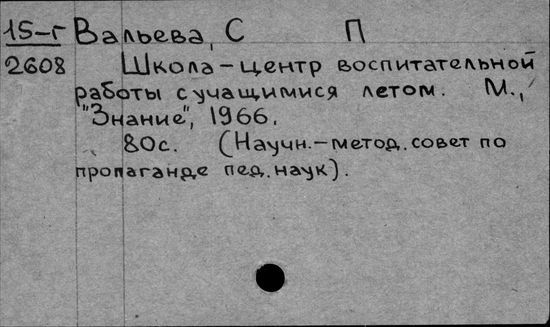 15-г Вальева, С П
2608 Школа-центр воспитательной
работы с учащимися летом. М.,
"Знание", 1966.
80с. (Научн.-метод. совет по
пропаганде пед. наук).